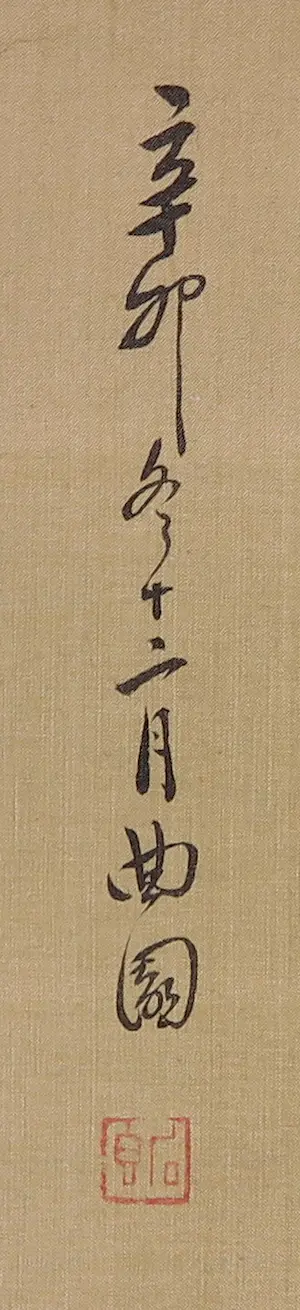 辛卯冬十二月曲園